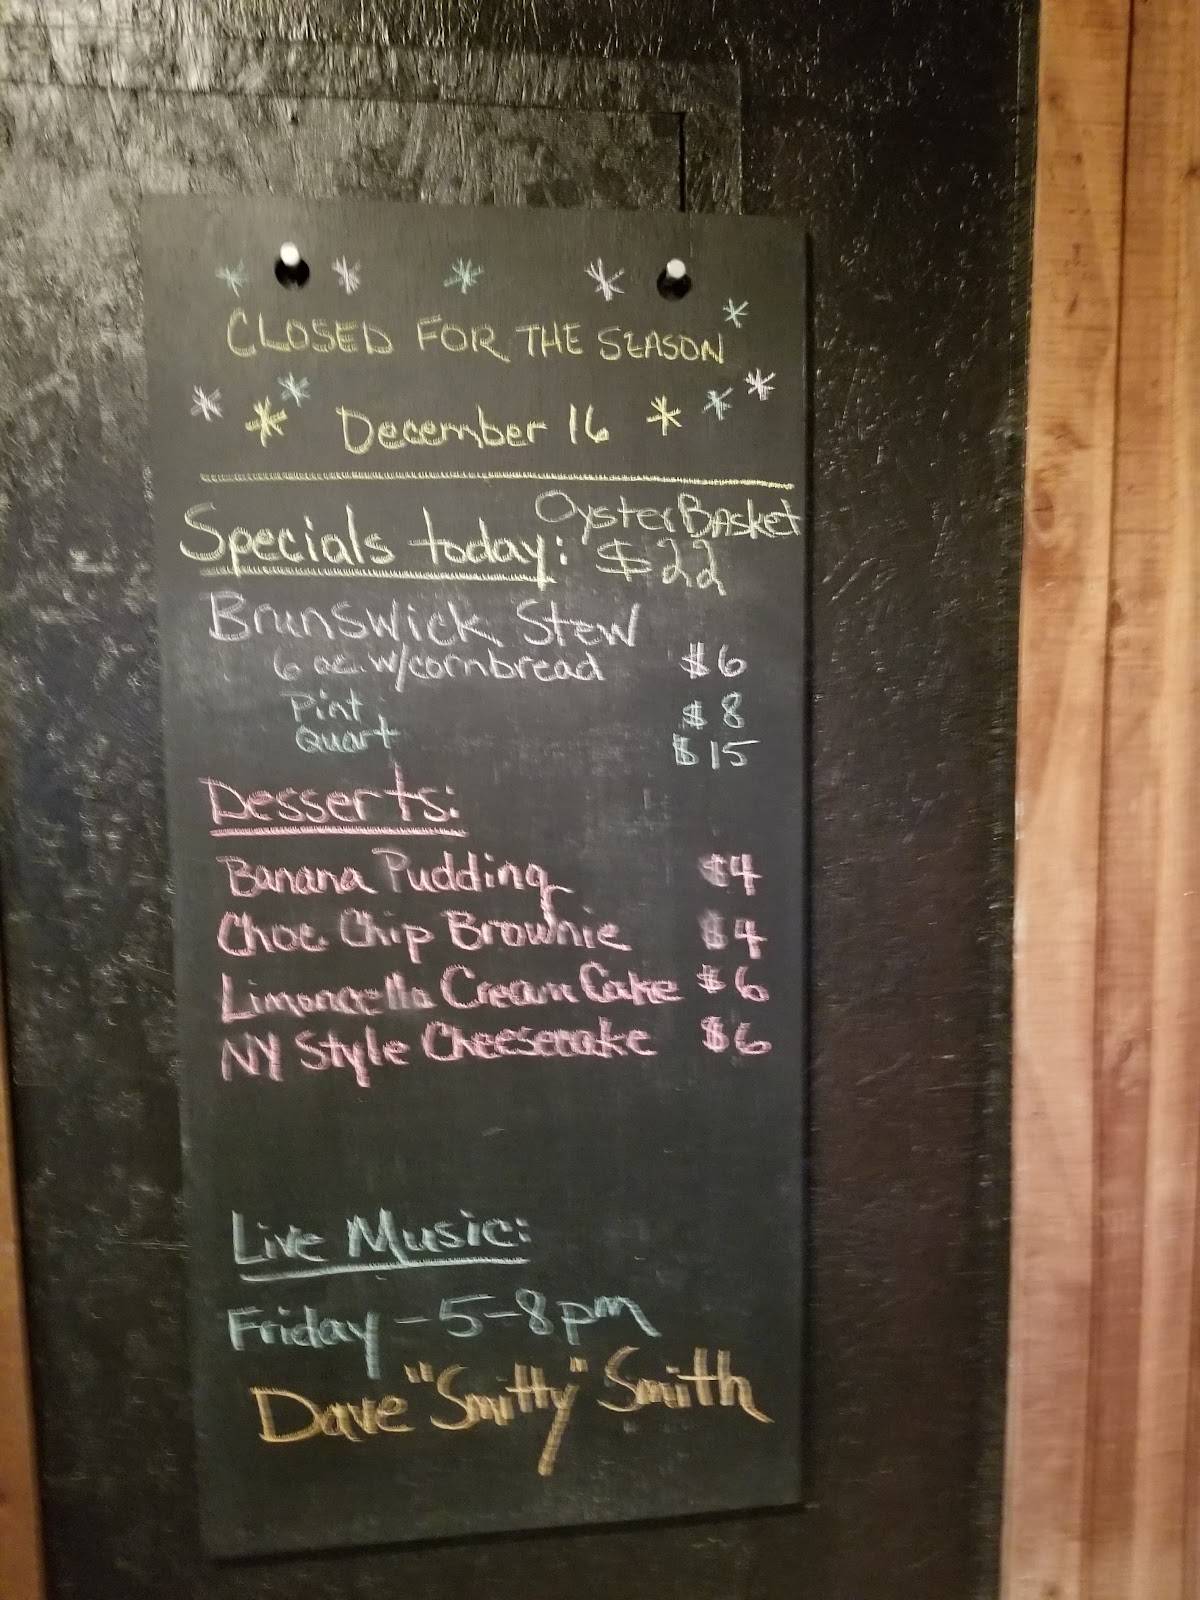 CLOSED FOR THE SEASON
December 16
Specials today: Oyster Basket
$22
Brunswick Stew
6 oz. w/cornbread $6
Pint $8
Quart $15
Desserts:
Banana Pudding $4
Choc Chip Brownie $4
Limoncello Cream Cake $6
NY Style Cheesecake $6
Live Music:
Friday - 5-8pm
Dave "Smitty" Smith